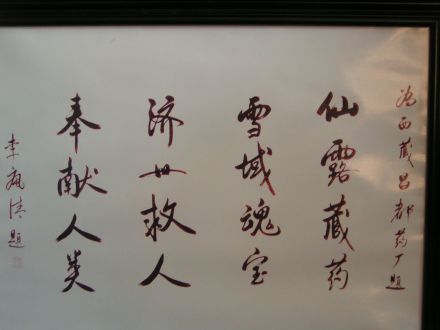 为西藏昌都药厂题
仙露藏药
雪域魂宝
济世救人
奉献人类
李题